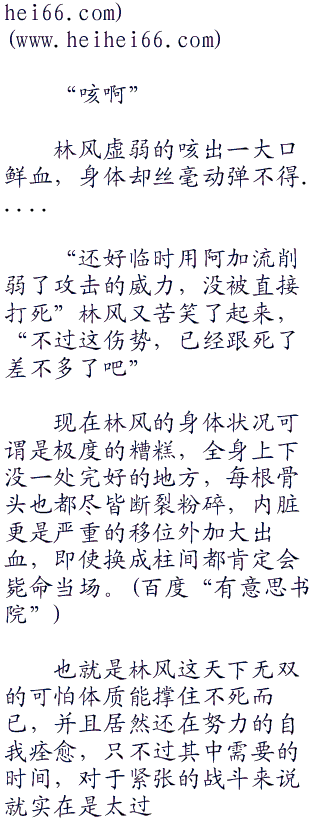 hei66.com)
(www.heihei66.com)
“咳啊”
林风虚弱的咳出一大口
鲜血，身体却丝毫动弹不得.
....
“还好临时用阿加流削
弱了攻击的威力，没被直接
打死”林风又苦笑了起来，
“不过这伤势，已经跟死了
差不多了吧”
现在林风的身体状况可
谓是极度的糟糕，全身上下
没一处完好的地方，每根骨
头也都尽皆断裂粉碎，内脏
更是严重的移位外加大出
血，即使换成柱间都肯定会
毙命当场。(百度“有意思书
院”)
也就是林风这天下无双
的可怕体质能撑住不死而
已，并且居然还在努力的自
我痊愈，只不过其中需要的
时间，对于紧张的战斗来说
就实在是太过